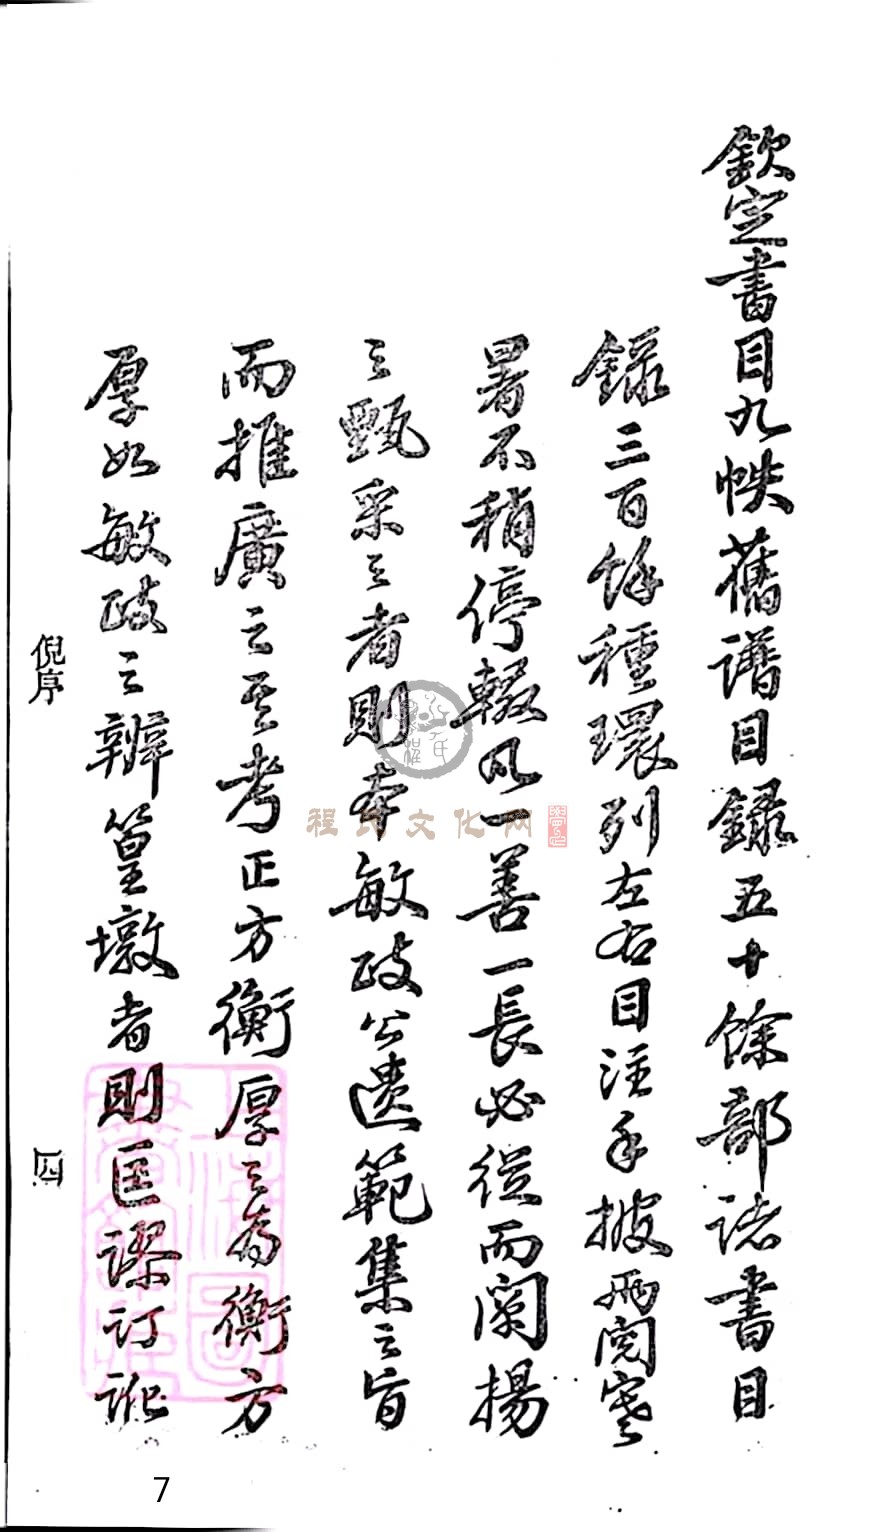 欽定書目九帙舊譜目錄五十餘部諸書目
錄三百餘種環列左右目注手披兩閱寒
暑不稍停輟凡一善一長必從而闡揚
之甄采之者則奉敏政公遺範集之旨
而推廣之至考正方衡厚之為衡方
厚如敏政之辨篁墩者則匡謬訂訛
倪序
四
程氏文化网
7